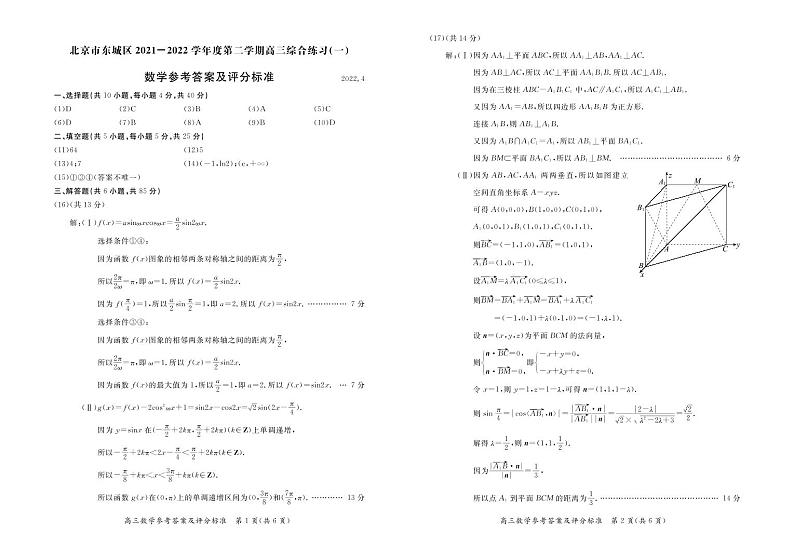 北京市东城区 2021-2022 学年度第二学期高三综合练习(一)
数学参考答案及评分标准 2022.4
一、选择题(共 10 小题,每小题 4 分,共 40 分)
(1)D (2)C (3)B (4)A (5)C
(6)D (7)B (8)A (9)B (10)D
二、填空题(共 5 小题,每小题 5 分,共 25 分)
(11)64 (12)5
(13)4;7 (14)(-1,ln2);(e,+∞)
(15)①③④(答案不唯一)
三、解答题(共 6 小题,共 85 分)
(16)(共 13 分)
解:(Ⅰ)f(x)=asinωxcosωx=a/2 sin2ωx.
选择条件①④:
因为函数 f(x)图象的相邻两条对称轴之间的距离为π/2,
所以2π/2ω=π,即 ω=1.所以 f(x)=a/2 sin2x.
因为 f(π/4)=1,所以a/2 sin π/2=1,即 a=2.所以 f(x)=sin2x. …………… 7 分
选择条件③④:
因为函数 f(x)图象的相邻两条对称轴之间的距离为π/2,
所以2π/2ω=π,即 ω=1.所以 f(x)=a/2 sin2x.
因为函数 f(x)的最大值为 1,所以a/2=1,即 a=2.所以 f(x)=sin2x. … 7 分
(Ⅱ)g(x)=f(x)-2cos²ωx+1=sin2x-cos2x=√2 sin(2x-π/4).
因为 y=sinx 在(-π/2+2kπ,π/2+2kπ)(k∈Z)上单调递增,
所以-π/2+2kπ<2x-π/4<π/2+2kπ(k∈Z).
所以-π/8+kπ<x<3π/8+kπ(k∈Z).
所以函数 g(x)在(0,π)上的单调递增区间为(0,3π/8)和(7π/8,π). ………… 13 分
高三数学参考答案及评分标准 第 1 页(共 6 页)
(17)(共 14 分)
解:(Ⅰ)因为 AA₁⊥平面 ABC,所以 AA₁⊥AB,AA₁⊥AC.
因为 AB⊥AC,所以 AC⊥平面 AA₁B₁B.所以 AC⊥AB₁.
因为在三棱柱 ABC-A₁B₁C₁ 中,AC∥A₁C₁,所以 A₁C₁⊥AB₁.
又因为 AA₁=AB,所以四边形 AA₁B₁B 为正方形.
连接 A₁B,则 AB₁⊥A₁B.
又因为 A₁B∩A₁C₁=A₁,所以 AB₁⊥平面 BA₁C₁.
因为 BM⊂平面 BA₁C₁,所以 AB₁⊥BM. ………………………………… 6 分
(Ⅱ)因为 AB,AC,AA₁ 两两垂直,所以如图建立
空间直角坐标系 A-xyz.
可得 A(0,0,0),B(1,0,0),C(0,1,0),
A₁(0,0,1),B₁(1,0,1),C₁(0,1,1).
则BC=(-1,1,0),AB₁=(1,0,1),
A₁B=(1,0,-1).
设A₁M=λA₁C₁(0≤λ≤1),
则BM=BA₁+A₁M=BA₁+λA₁C₁
=(-1,0,1)+λ(0,1,0)=(-1,λ,1).
设 n=(x,y,z)为平面 BCM 的法向量,
则{n·BC=0, n·BM=0, 即{-x+y=0, -x+λy+z=0.
令 x=1,则 y=1,z=1-λ,可得 n=(1,1,1-λ).
则 sin π/4=|cos⟨AB₁,n⟩|=|AB₁·n|/|AB₁||n|=|2-λ|/√2×√λ²-2λ+3=√2/2.
解得 λ=1/2,则 n=(1,1,1/2).
因为|A₁B·n|/|n|=1/3,
所以点 A₁ 到平面 BCM 的距离为1/3. ……………………………………… 14 分
z
A₁ M C₁
B₁
A C y
B
x
高三数学参考答案及评分标准 第 2 页(共 6 页)